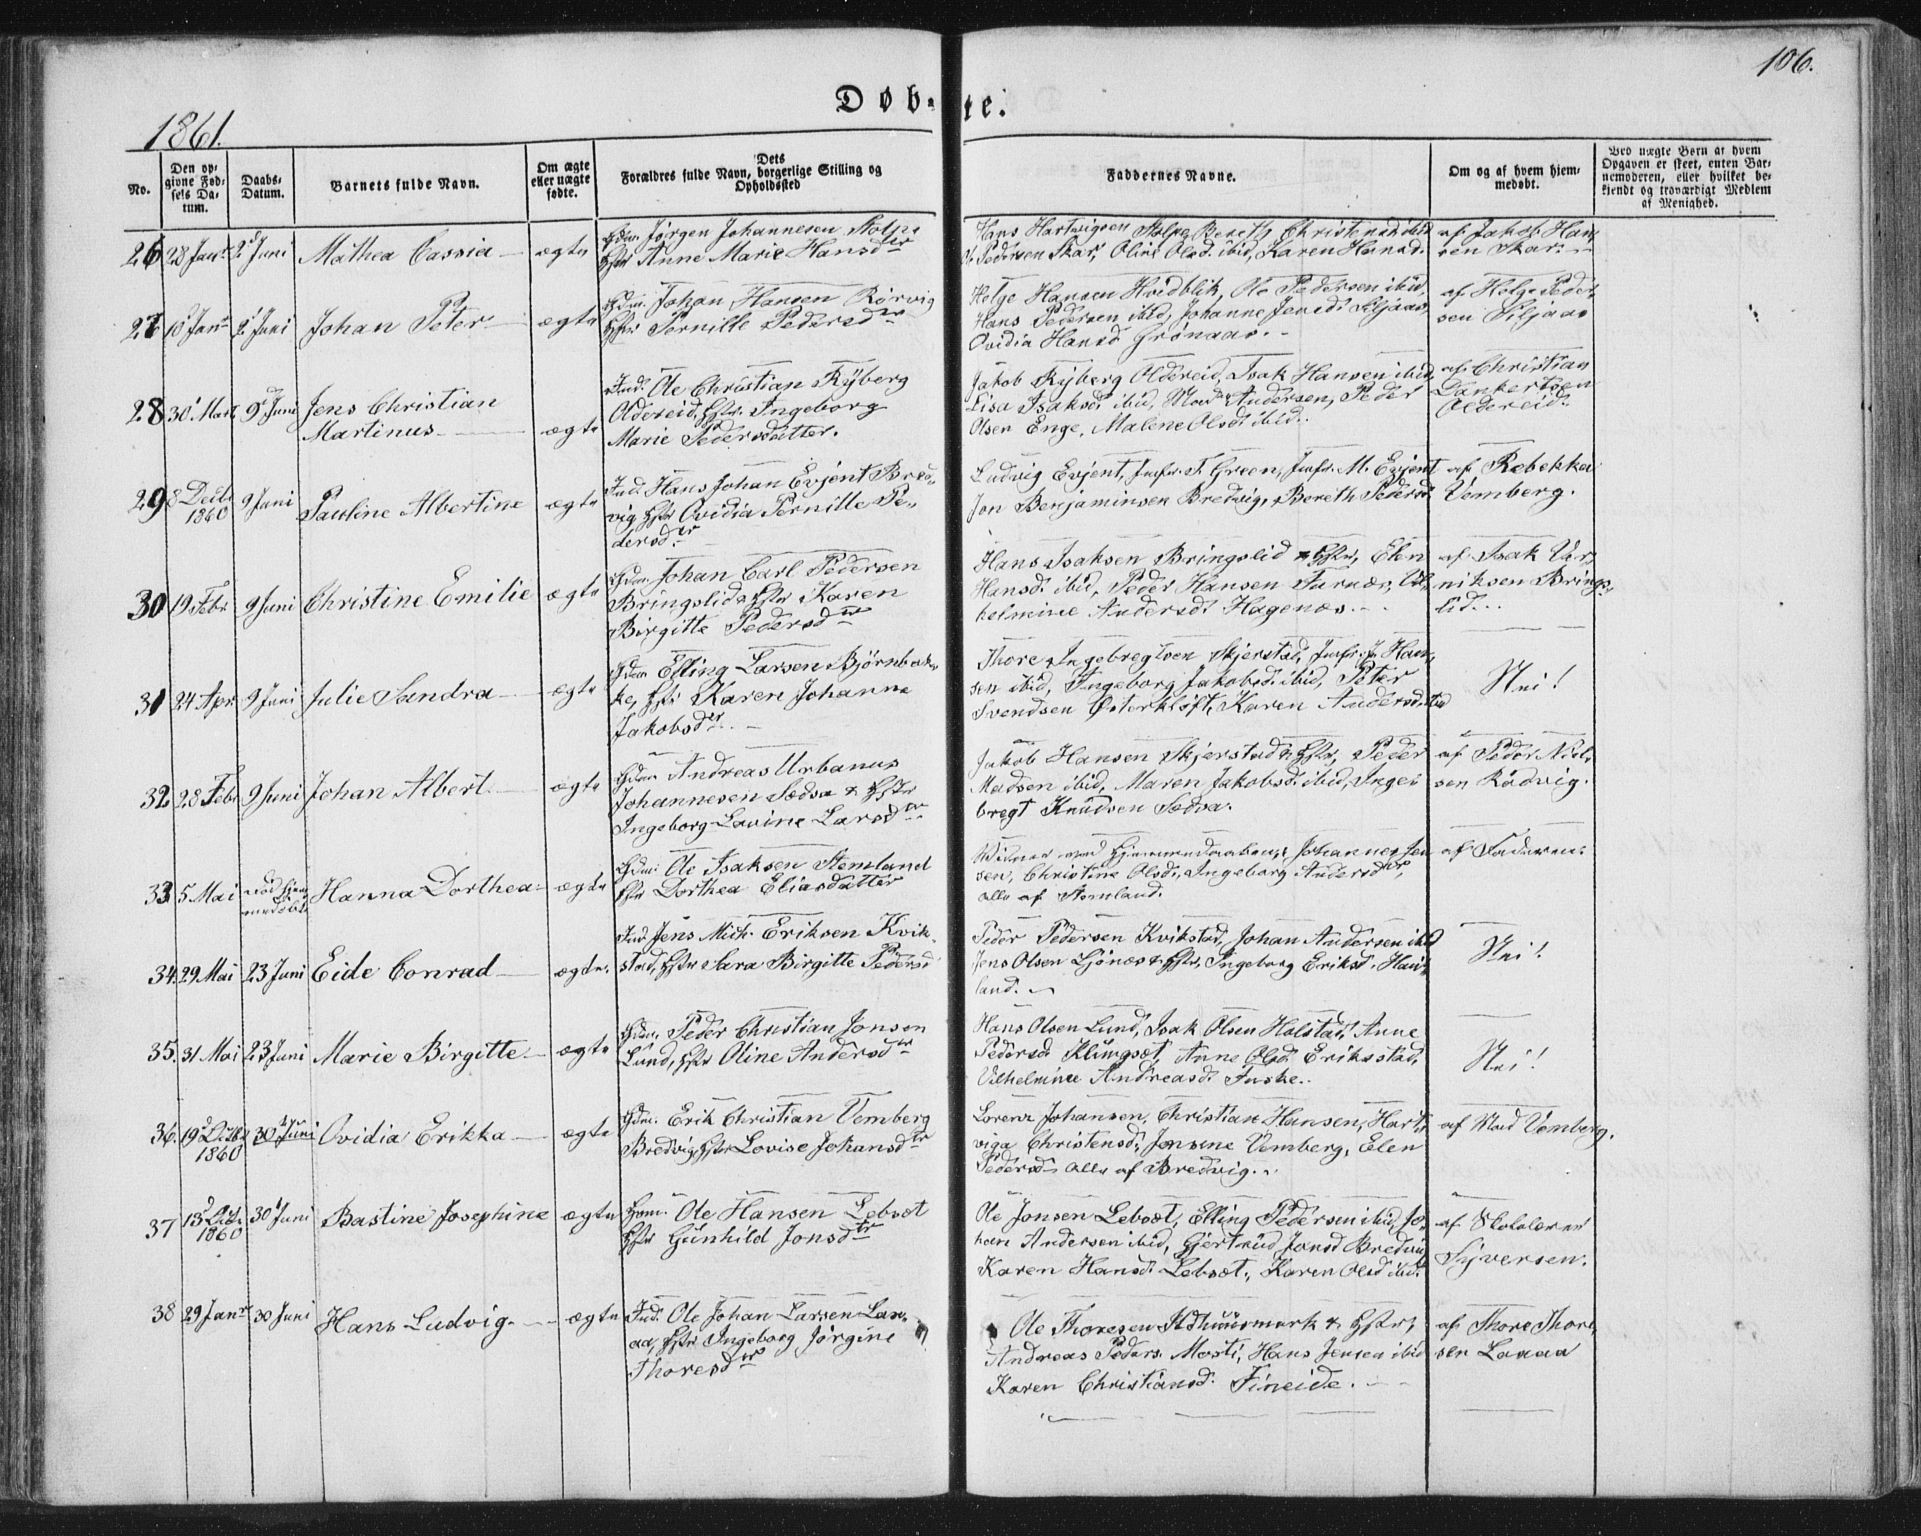 106.
Døb- te.
1861.
No.
Den op-
givne Fød-
sels Da-
tum.
Daabs-
Datum.
Barnets fulde Navn.
Om ægte
eller uægte
fødte.
Dets
Forældres fulde Navn, borgerlige Stilling og
Opholdssted
Faddernes Navne.
Om og af hvem hjem-
medøbt.
Ved uægte Børn at hvem
Opgaven er skeet, enten Bar-
nemoderen, eller hvilket be-
kjendt og troværdigt Medlem
af Menighed.
26 28 Janr 2 Juni Mathea Cassia ægte
Gdm. Jørgen Johannesen Stolpe
Hstr Anne Marie Hansdtr
Hans Hartvigsen Stolpe, Bereth Christensd ibid
Pedersen Skar, Oline Olsd. ibid, Karen Hansd.
af Jakob Han-
sen Skar
27 10 Janr 2 Juni Johan Peter ægte
Gdm. Johan Hansen Rørvig
Hstr Pernille Pedersdtr
Helge Hansen Hvidblik, Ole Pedersen ibid,
Hans Pedersen ibid, Johanne Jensd. Siljaas,
Ovidia Hansd Grønaas.
af Helge Peder-
sen Siljaas
28 30 Mart 9 Juni Jens Christian
Martinus ægte
Ind. Ole Christian Ryberg
Oldereid, Hstr Ingeborg
Marie Pedersdatter.
Jakob Ryberg Oldereid, Isak Hansen ibid,
Lisa Isaksd. ibid, Mad Andersen, Peder
Olsen Enge, Malene Olsd. ibid.
af Christian
Dankertsen
Oldereid.
29 8 Decbr
1860 9 Juni Pauline Albertine ægte
Ind. Hans Johan Evjent Bred-
vig, Hstr Ovidia Pernille Pe-
dersdtr
Ludvig Evjent, Jmfr. T. Green, Jmfr. M. Evjent
Jon Benjaminsen Bredvig, Bereth Pedersd
af Rebekka
Vemberg.
30 19 Febr 9 Juni Christine Emilie ægte
Gdm. Johan Carl Pedersen
Bringslid & Hstr Karen
Birgitte Pedersdtr
Hans Isaksen Bringslid & Hstr, Elen
Hansd. ibid, Peder Hansen Furnæs, Vil-
helmine Andersd. Hagenæs.
af Isak Ur-
niksen Brings-
lid.
31 24 Apr. 9 Juni Julie Sandra ægte
Gdm Elling Larsen Bjørnbak-
ke, Hstr Karen Johanna
Jakobsdtr.
Thore Ingebregtsen Skjerstad, Jmfr. J. Han-
sen ibid, Ingeborg Jakobsd. ibid, Peter
Svendsen Østerkløft, Karen Andersd. ibid
Nei!
32 28 Febr 9 Juni Johan Albert ægte
Gdm. Andreas Urbanus
Johannesen Sædva & Hstr
Ingeborg Lavine Larsdtr
Jakob Hansen Skjerstad & Hstr, Peder
Madsen ibid, Maren Jakobsd. ibid, Inge-
bregt Knudsen Sædva.
af Peder Niel-
sen Rødvig.
33 5 Mai død hjem-
medøbt Hanna Dorthea ægte
Gdm. Ole Isaksen Stemland
Hstr Dorthea Eliasdatter
Vidner ved Hjemmedaaben: Johannes Jen-
sen, Christine Olsd., Ingeborg Andersdtr,
alle af Stemland.
af Faderen.
34. 29 Mai 23 Juni Eide Conrad ægte.
Ind Jens Mich. Eriksen Kvik-
stad, Hstr Sara Birgitte Pedersd
Peder Pedersen Kvikstad, Johan Andersen ibid
Jens Olsen Ljønæs & Hstr, Ingeborg Eriksd. Hau-
land.
Nei!
35. 31 Mai 23 Juni Marie Birgitte ægte
Gdm. Peder Christian Jonsen
Lund, Hstr Oline Andersdtr
Hans Olsen Lund, Isak Olsen Halstad, Anne
Pedersd. Klungset, Anne Olsd. Eriksstad,
Vilhelmine Andreasd. Fuske.
Nei!
36. 19 Decbr
1860 30 Juni Ovidia Erikka ægte
Gdm. Erik Christian Vemberg
Bredvig, Hstr Lovise Johansdtr
Lorenz Johansen, Christian Hansen, Hart-
viga Christensd., Jensine Vemberg, Elen
Pedersd. alle af Bredvig.
af Mad Vemberg.
37 13 Octr
1860 30 Juni Bastine Josephine ægte
Hum. Ole Hansen Lebset
Hstr Gunhild Jonsdtr
Ole Jonsen Lebset, Elling Pedersen ibid, Jo-
han Andersen ibid, Gjertrud Jonsd Bredvig
Karen Hansd. Lebset, Karen Olsd ibid.
af Skolelærer
Syversen.
38 29 Janr 30 Juni Hans Ludvig. ægte
Ind. Ole Johan Larsen Lan-
aa, Hstr Ingeborg Jørgine
Thoresdtr
Ole Thoresen Ildhuusmark & Hstr,
Andreas Peders. Mosti, Hans Jensen ibid
Karen Christiansd. Fineide.
af Thore Thore-
sen Lanaa